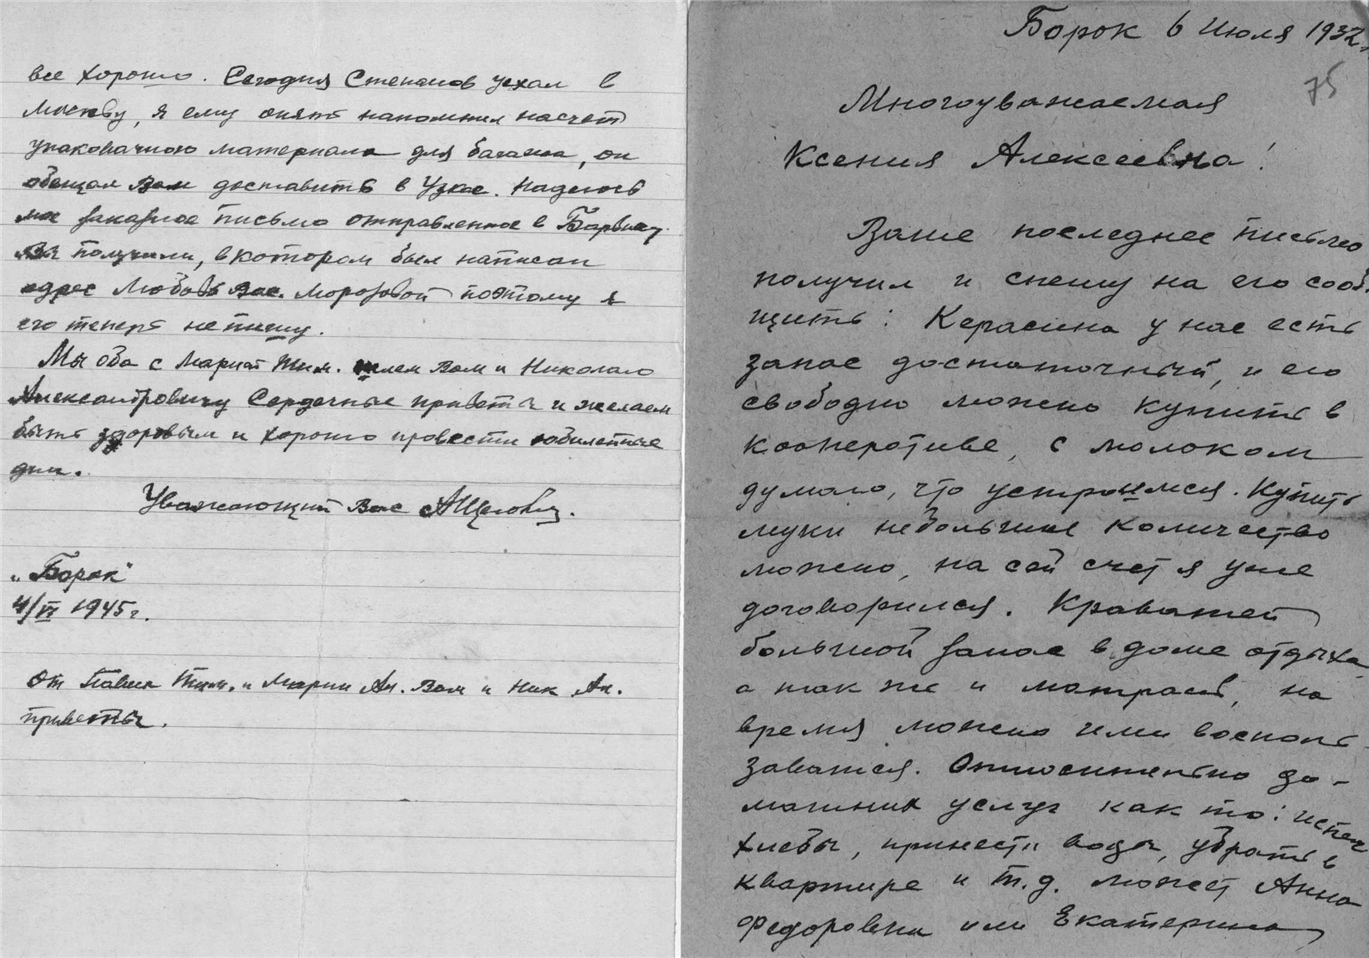 все хорошо. Сегодня Степанов уехал в
Москву, я ему опять напомнил насчет
упаковачного материала для багажа, он
обещал Вам доставить в Узкое. Надеюсь
мое заказное письмо отправленное в Барвиху
Вы получили, в котором был написан
адрес Любовь Вас. Морозовой поэтому я
его теперь не пишу.
Мы оба с Марией Тим. шлем Вам и Николаю
Александровичу Сердечные приветы и желаем
быть здоровым и хорошо провести юбилейные
дни.
Уважающий Вас
„Борок"
4/VI 1945 г.
От Павла Тим. и Марии Ан. Вам и Ник Ал.
приветы.
Борок 6 Июля 1932
75
Многоуважаемая
Ксения Алексеевна!
Ваше последнее письмо
получил и спешу на его сооб.
щить: Керасина у нас есть
запас достаточный, и его
свободно можно купить в
кооперотиве, с молоком
думаю, что устроимся. Купить
муки небольшое количество
можно, на сей счет я уже
договорился. Кроватей
большой запас в доме отдыха,
а так же и матрасов, на
время можно ими восполь
заватся. Относительно до-
машних услуг как то: испечь
хлебы, принести воды, убрать в
квартире и т.д. может Анна
Федоровна или Екатерина